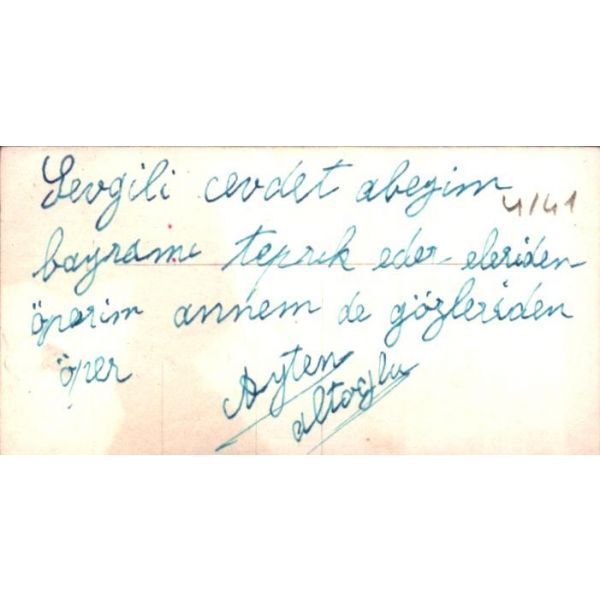 Sevgili cevdet abegim
4141
bayramı teprik eder eleriden
öperim annem de gözleriden
öper
Ayten
altoğlu